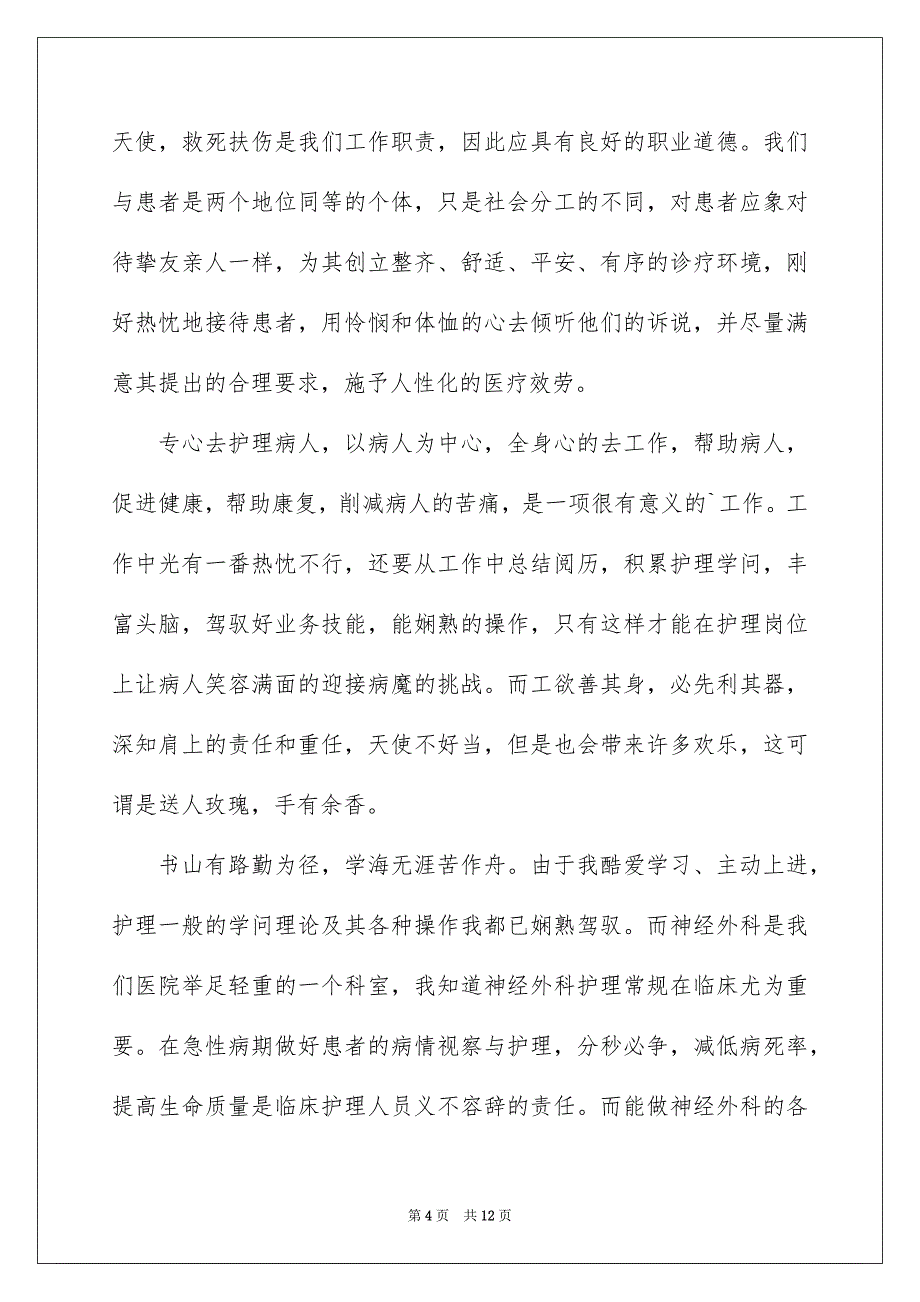 天使，救死扶伤是我们工作职责，因此应具有良好的职业道德。我们
与患者是两个地位同等的个体，只是社会分工的不同，对患者应象对
待挚友亲人一样，为其创立整齐、舒适、平安、有序的诊疗环境，刚
好热忱地接待患者，用怜悯和体恤的心去倾听他们的诉说，并尽量满
意其提出的合理要求，施予人性化的医疗效劳。
专心去护理病人，以病人为中心，全身心的去工作，帮助病人，
促进健康，帮助康复，削减病人的苦痛，是一项很有意义的`工作。工
作中光有一番热忱不行，还要从工作中总结阅历，积累护理学问，丰
富头脑，驾驭好业务技能，能娴熟的操作，只有这样才能在护理岗位
上让病人笑容满面的迎接病魔的挑战。而工欲善其身，必先利其器，
深知肩上的责任和重任，天使不好当，但是也会带来许多欢乐，这可
谓是送人玫瑰，手有余香。
书山有路勤为径，学海无涯苦作舟。由于我酷爱学习、主动上进，
护理一般的学问理论及其各种操作我都已娴熟驾驭。而神经外科是我
们医院举足轻重的一个科室，我知道神经外科护理常规在临床尤为重
要。在急性病期做好患者的病情视察与护理，分秒必争，减低病死率，
提高生命质量是临床护理人员义不容辞的责任。而能做神经外科的各
第 4 页 共 12 页